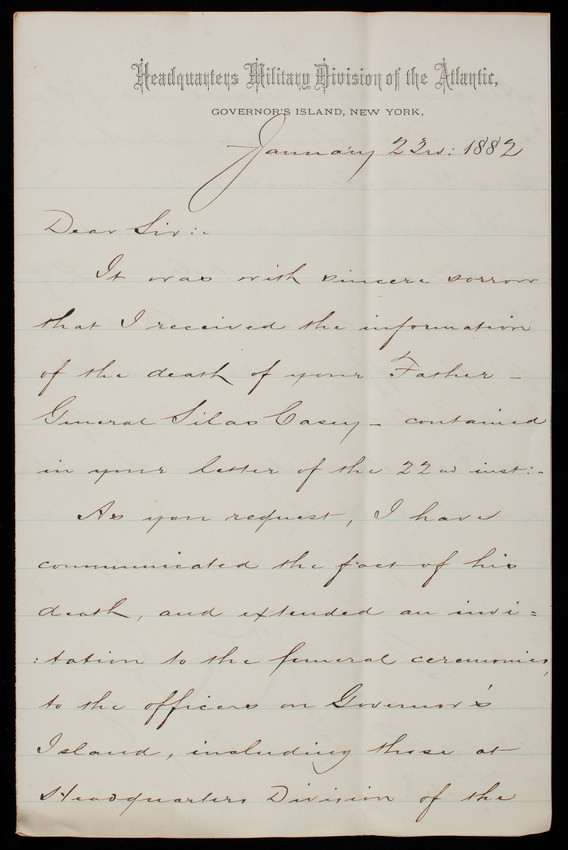 Headquarters Military Division of the Atlantic,
GOVERNOR'S ISLAND, NEW YORK,
January 23d: 1882
Dear Sir:-
It was with sincere sorrow
that I received the information
of the death of your Father -
General Silas Casey - contained
in your letter of the 22d inst:-
As you request, I have
communicated the fact of his
death, and extended an invi=
:tation to the funeral ceremonies,
to the officers on Governor's
Island, including those at
Headquarters Division of the